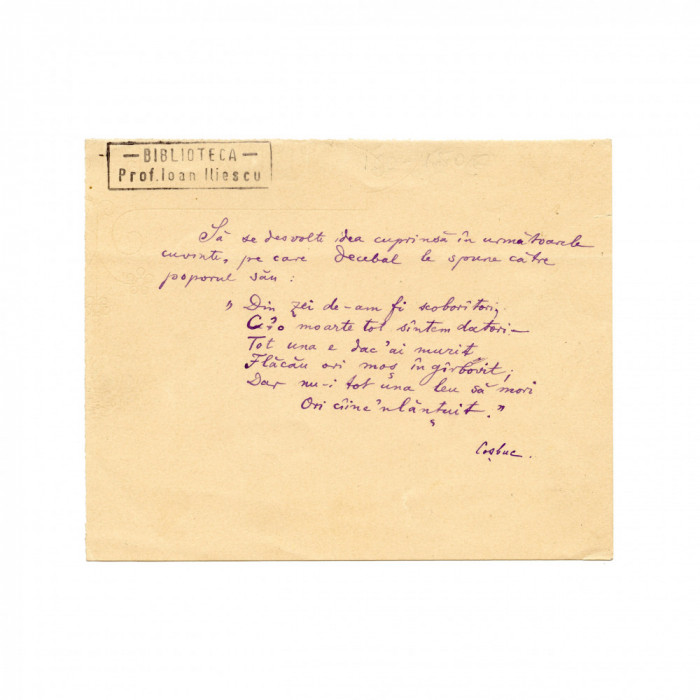 — BIBLIOTECA —
Prof. Ioan Iliescu
Să se desvolte idea cuprinsă în următoarele
cuvinte, pe care Decebal le spune către
poporul său :
„ Din zei de-am fi scoborîtori,
C'o moarte tot sîntem datori —
Tot una e dac'ai murit
Flăcău ori moș îngîrbovit;
Dar nu-i tot una leu să mori
Ori cîine 'nlănțuit. "
Coșbuc.